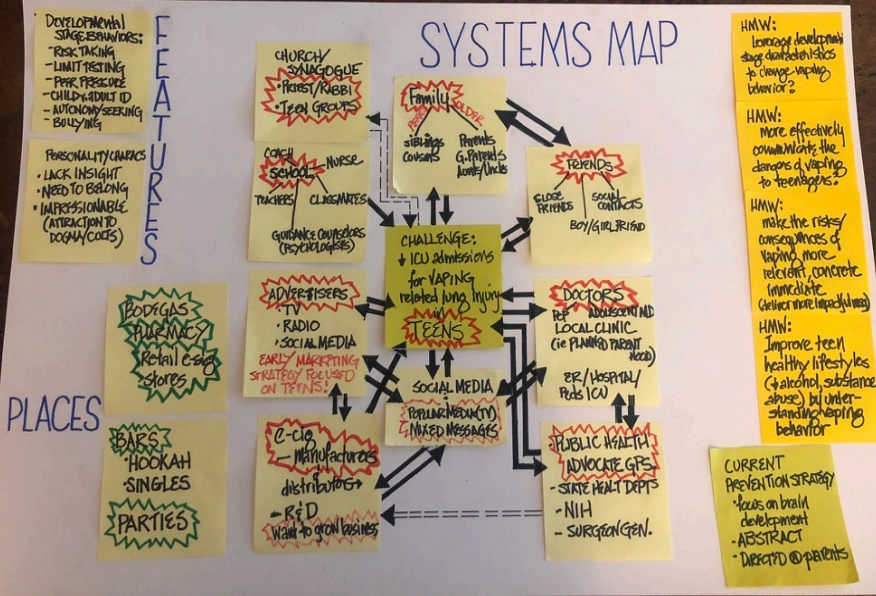 SYSTEMS MAP
FEATURES
DEVELOPMENTAL
STAGE BEHAVIORS:
- RISK TAKING
- LIMIT TESTING
- PEER PRESSURE
- CHILD & ADULT ID
- AUTONOMY SEEKING
- BULLYING
PERSONALITY CHARACS
• LACK INSIGHT
• NEED TO BELONG
• IMPRESSIONABLE
(ATTRACTION TO
DOGMA/CULTS)
PLACES
BODEGAS
PHARMACY
Retail e-cig
stores
BARS
• HOOKAH
• SINGLES
PARTIES
CHURCH/
SYNAGOGUE
• PRIEST/RABBI
• TEEN GROUPS
COACH
NURSE
SCHOOL
TEACHERS
CLASSMATES
GUIDANCE COUNSELORS
(PSYCHOLOGISTS)
ADVERTISERS
• TV
• RADIO
• SOCIAL MEDIA
EARLY MARKETING
STRATEGY FOCUSED
ON TEENS!
e-cig
- manufacturers
distributors
- R&D
want to grow business
Family
PEERS
OLDER
siblings
cousins
Parents
G.Parents
Aunts/Uncles
FRIENDS
CLOSE
FRIENDS
SOCIAL
CONTACTS
BOY/GIRLFRIEND
CHALLENGE:
↓ ICU admissions
for VAPING
related lung injury
in
TEENS
SOCIAL MEDIA
POPULAR MEDIA (TV)
MIXED MESSAGES
DOCTORS
PCP
ADOLESCENT MD
LOCAL CLINIC
(ie PLANNED PARENT
HOOD)
ER/HOSPITAL/
Peds ICU
• PUBLIC HEALTH
ADVOCATE GPS
- STATE HEALT DEPTS
• NIH
- SURGEON GEN.
HMW:
Leverage development
stage characteristics
to change vaping
behavior?
HMW:
more effectively
communicate the
dangers of vaping
to teenagers?
HMW:
make the risks/
consequences of
vaping more
relevant, concrete
immediate
(deliver more impactful msg)
HMW:
Improve teen
healthy lifestyles
(↓ alcohol, substance
abuse,) by under-
standing vaping
behavior
CURRENT
PREVENTION STRATEGY
• focus on brain
development
- ABSTRACT
- DIRECTED @ parents